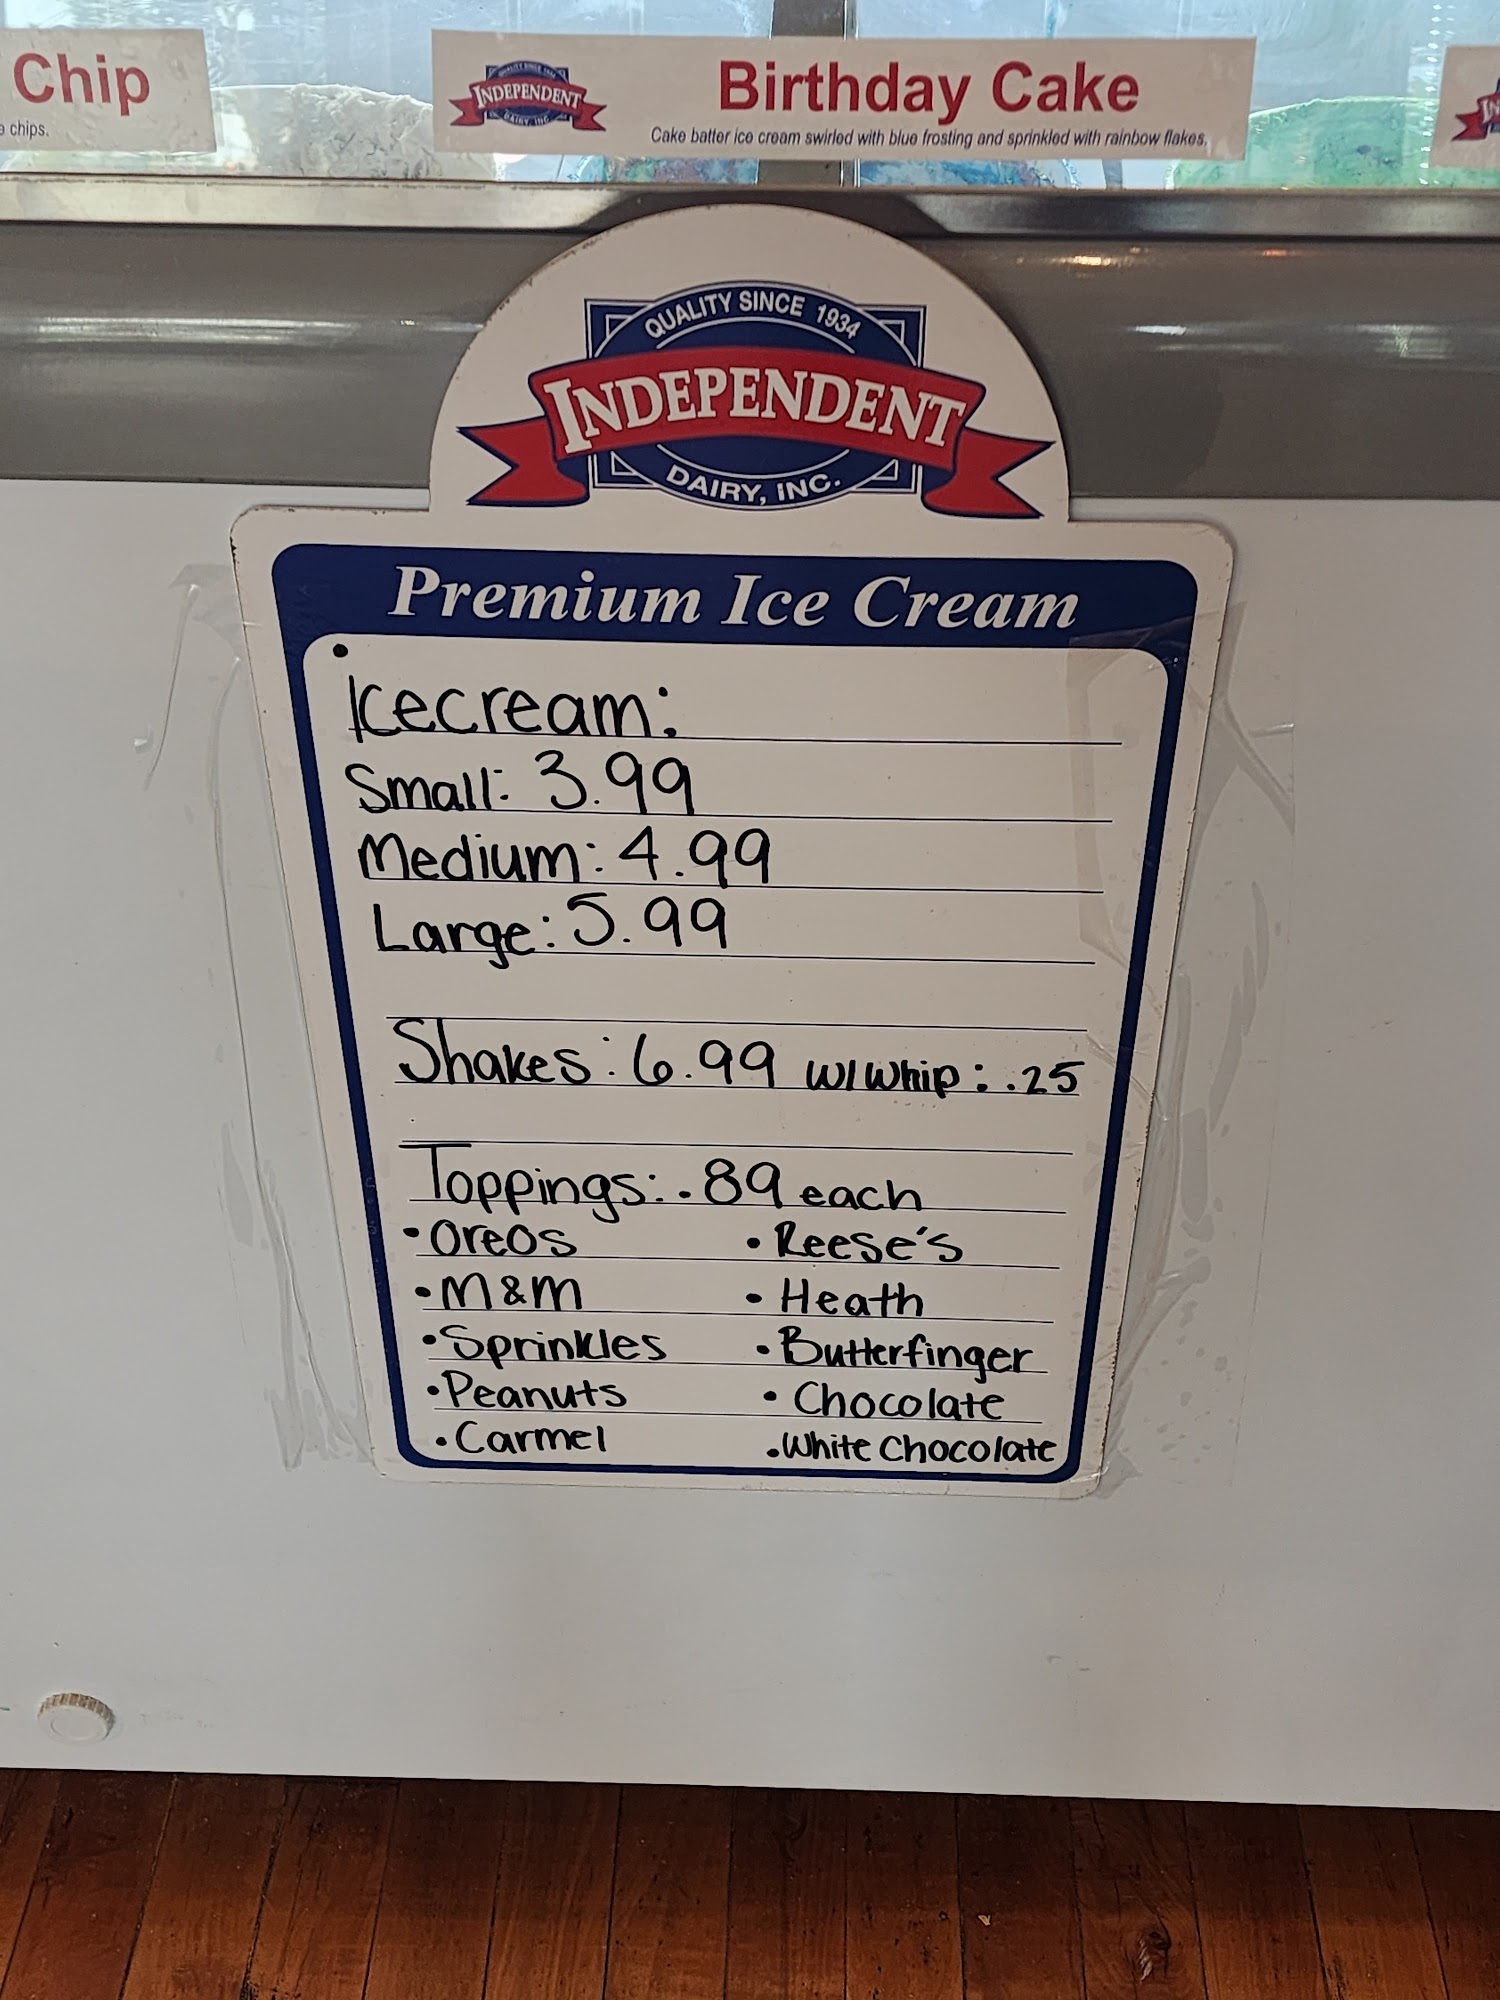 Chip
chips.
INDEPENDENT
DAIRY, INC.
Birthday Cake
Cake batter ice cream swirled with blue frosting and sprinkled with rainbow flakes.
QUALITY SINCE 1934
INDEPENDENT
DAIRY, INC.
Premium Ice Cream
Icecream:
Small: 3.99
Medium: 4.99
Large: 5.99
Shakes: 6.99 w/whip: .25
Toppings: .89 each
• Oreos • Reese's
• M&M • Heath
• Sprinkles • Butterfinger
• Peanuts • Chocolate
• Carmel • White Chocolate